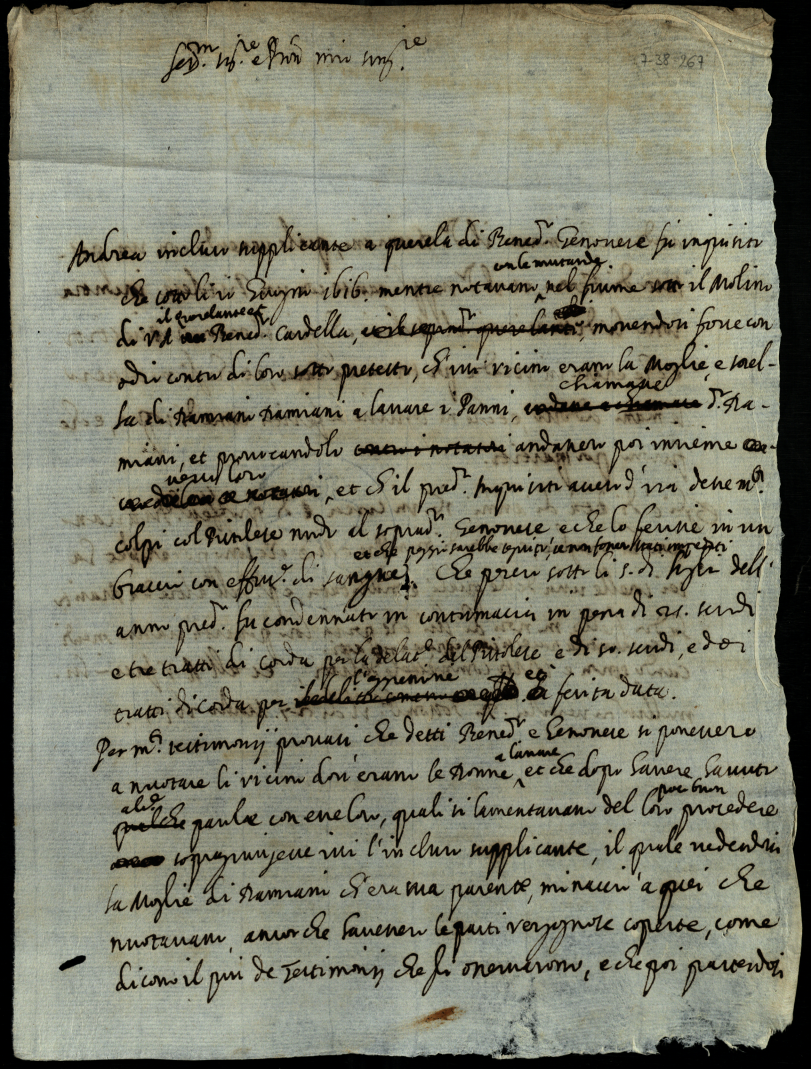 Ser.mo Sig.re e P'ron mio sing.re
37-38-267
Andrea incluso supplicante a querela di Bened.o Genovese fu inquisito
che sotto li 11 Giugno 1616. mentre notavano con le mutande nel fiume sotto il Molino
di il querelante et Bened.o Cardella, movendosi forse con
odio contro di loro sotto pretesto, ch'ivi vicini erano la Moglie, e sorel-
la di Damiano Damiani a lavare i Panni, chiamasse d.o Da-
miani, et provocandolo andassero poi insieme
verso loro, et ch'il pred.o Inquisito avendo
colpi col Pistolese nudo al soprad.o Genovese e che lo ferisse in un
braccio con effus.e di sangue, Che perciò sotto li 5. di dell'
anno pred.o fu condennato in contumacia in pena di 25. scudi
e tre tratti di corda per la delat.e del Pistolese e di 50. scudi, e doi
tratti di corda per l'assenine ferita data.
Per m.ti testimonij provati che detti Bened.o e Genovese si ponessero
a nuotare li vicini dov'erano le Donne a lavare, et che dopo havere havuto
parole con esse loro, quali si lamentavano del loro poco buon procedere
sopragiungesse ivi l'incluso supplicante, il quale vedendovi
la Moglie di Damiani ch'era sua parente, minacciò a quei che
nuotavano, ancorche havessero le parti vergognose coperte, come
dicono il più de Testimonij che si osservarono, e che poi partendosi